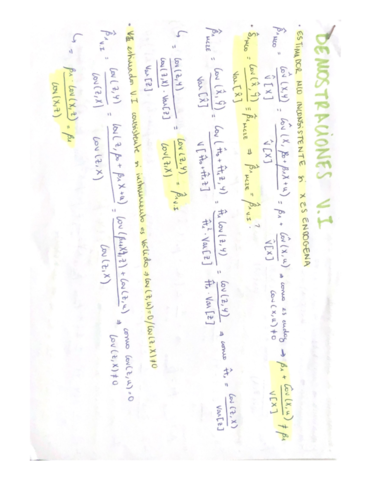 DEMOSTRACIONES V.I
• ESTIMADOR MCO INCONSISTENTE SI X ES ENDOGENA
β̂₁MCO = Cov(X,Y) / V̂[X] = Cov(X, β₀ + β₁X + u) / V̂[X] = β₁ + Cov(X,u) / V̂[X] → como es endog → β₁ + Cov(X,u) / V[X] ≠ β₁
Cov(X,u) ≠ 0
= Cov(X̂,Ŷ) / Var[X̂] = β̂₁MC2E → β̂₁MC2E = β̂₁VI ?
β̂₁MC2E = Cov(X̂,Y) / Var[X̂] = Cov(π̂₀ + π̂₁Z, Y) / V[π̂₀ + π̂₁Z] = π̂₁ Cov(Z,Y) / π̂₁² Var[Z] = Cov(Z,Y) / π̂₁ Var[Z] → como π̂₁ = Cov(Z,X) / Var[Z]
↳ = Cov(Z,Y) / Cov(Z,X) · Var[Z] / Var[Z] = Cov(Z,Y) / Cov(Z,X) = β̂₁VI
• VI estimador V.I consistente si instrumento es válido → Cov(Z,u)=0 / Cov(Z,X)≠0
β̂₁VI = Cov(Z,Y) / Cov(Z,X) = Cov(Z, β₀ + β₁X + u) / Cov(Z,X) = Cov(β₁X,Z) + Cov(Z,u) / Cov(Z,X) → como Cov(Z,u)=0
Cov(Z,X)≠0
↳ = β₁ Cov(X,Z) / Cov(X,Z) = β₁